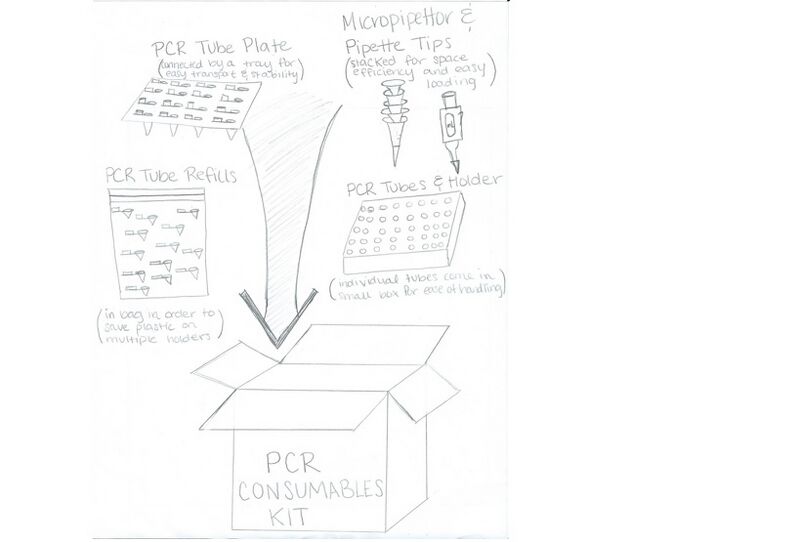 PCR Tube Plate
(connected by a tray for
easy transport & stability)
Micropipettor &
Pipette Tips
(stacked for space
efficiency and easy
loading)
PCR Tube Refills
(in bag in order to
save plastic on
multiple holders)
PCR Tubes & Holder
(individual tubes come in
small box for ease of handling)
PCR
CONSUMABLES
KIT